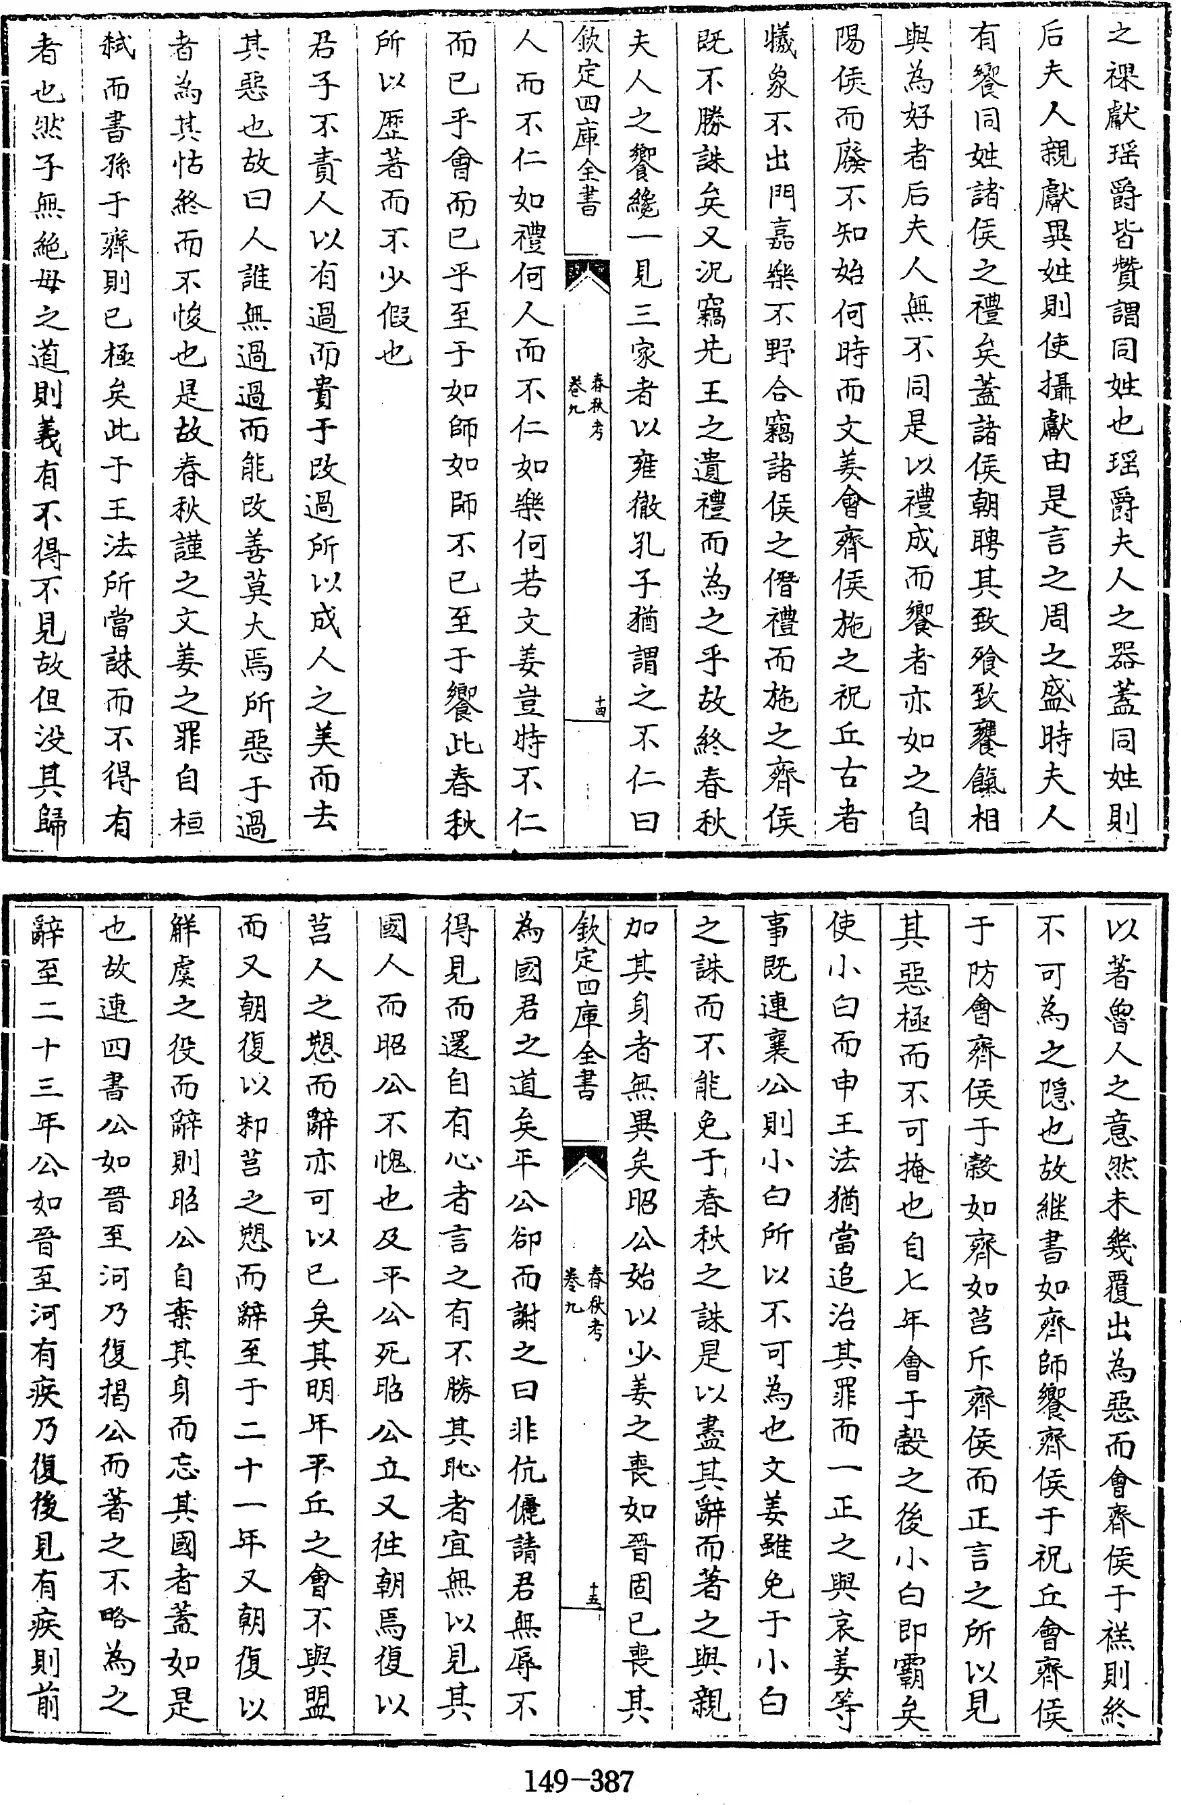 之祼獻瑶爵皆贊謂同姓也瑶爵夫人之器蓋同姓則
后夫人親獻異姓則使攝獻由是言之周之盛時夫人
有饗同姓諸侯之禮矣蓋諸侯朝聘其致飱致饔餼相
與為好者后夫人無不同是以禮成而饗者亦如之自
陽侯而廢不知始何時而文姜會齊侯施之祝丘古者
犧象不出門嘉樂不野合竊諸侯之僭禮而施之齊侯
既不勝誅矣又況竊先王之遺禮而為之乎故終春秋
夫人之饗纔一見三家者以雍徹孔子猶謂之不仁曰
欽定四庫全書
春秋考
卷九
十四
人而不仁如禮何人而不仁如樂何若文姜豈特不仁
而已乎會而已乎至于如師如師不已至于饗此春秋
所以歴著而不少假也
君子不責人以有過而貴于改過所以成人之美而去
其惡也故曰人誰無過過而能改善莫大焉所惡于過
者為其怙終而不悛也是故春秋謹之文姜之罪自桓
弑而書孫于齊則已極矣此于王法所當誅而不得有
者也然子無絶母之道則義有不得不見故但没其歸
以著魯人之意然未幾覆出為惡而會齊侯于禚則終
不可為之隠也故継書如齊師饗齊侯于祝丘會齊侯
于防會齊侯于穀如齊如莒斥齊侯而正言之所以見
其惡極而不可掩也自七年會于穀之後小白即霸矣
使小白而申王法猶當追治其罪而一正之與哀姜等
事既連襄公則小白所以不可為也文姜雖免于小白
之誅而不能免于春秋之誅是以盡其辭而著之與親
加其身者無異矣昭公始以少姜之喪如晉固已喪其
欽定四庫全書
春秋考
卷九
十五
為國君之道矣平公卻而謝之曰非伉儷請君無辱不
得見而還自有心者言之有不勝其恥者宜無以見其
國人而昭公不愧也及平公死昭公立又徃朝焉復以
莒人之愬而辭亦可以已矣其明年平丘之會不與盟
而又朝復以邾莒之愬而辭至于二十一年又朝復以
鮮虞之役而辭則昭公自棄其身而忘其國者蓋如是
也故連四書公如晉至河乃復揭公而著之不略為之
辭至二十三年公如晉至河有疾乃復後見有疾則前
149-387